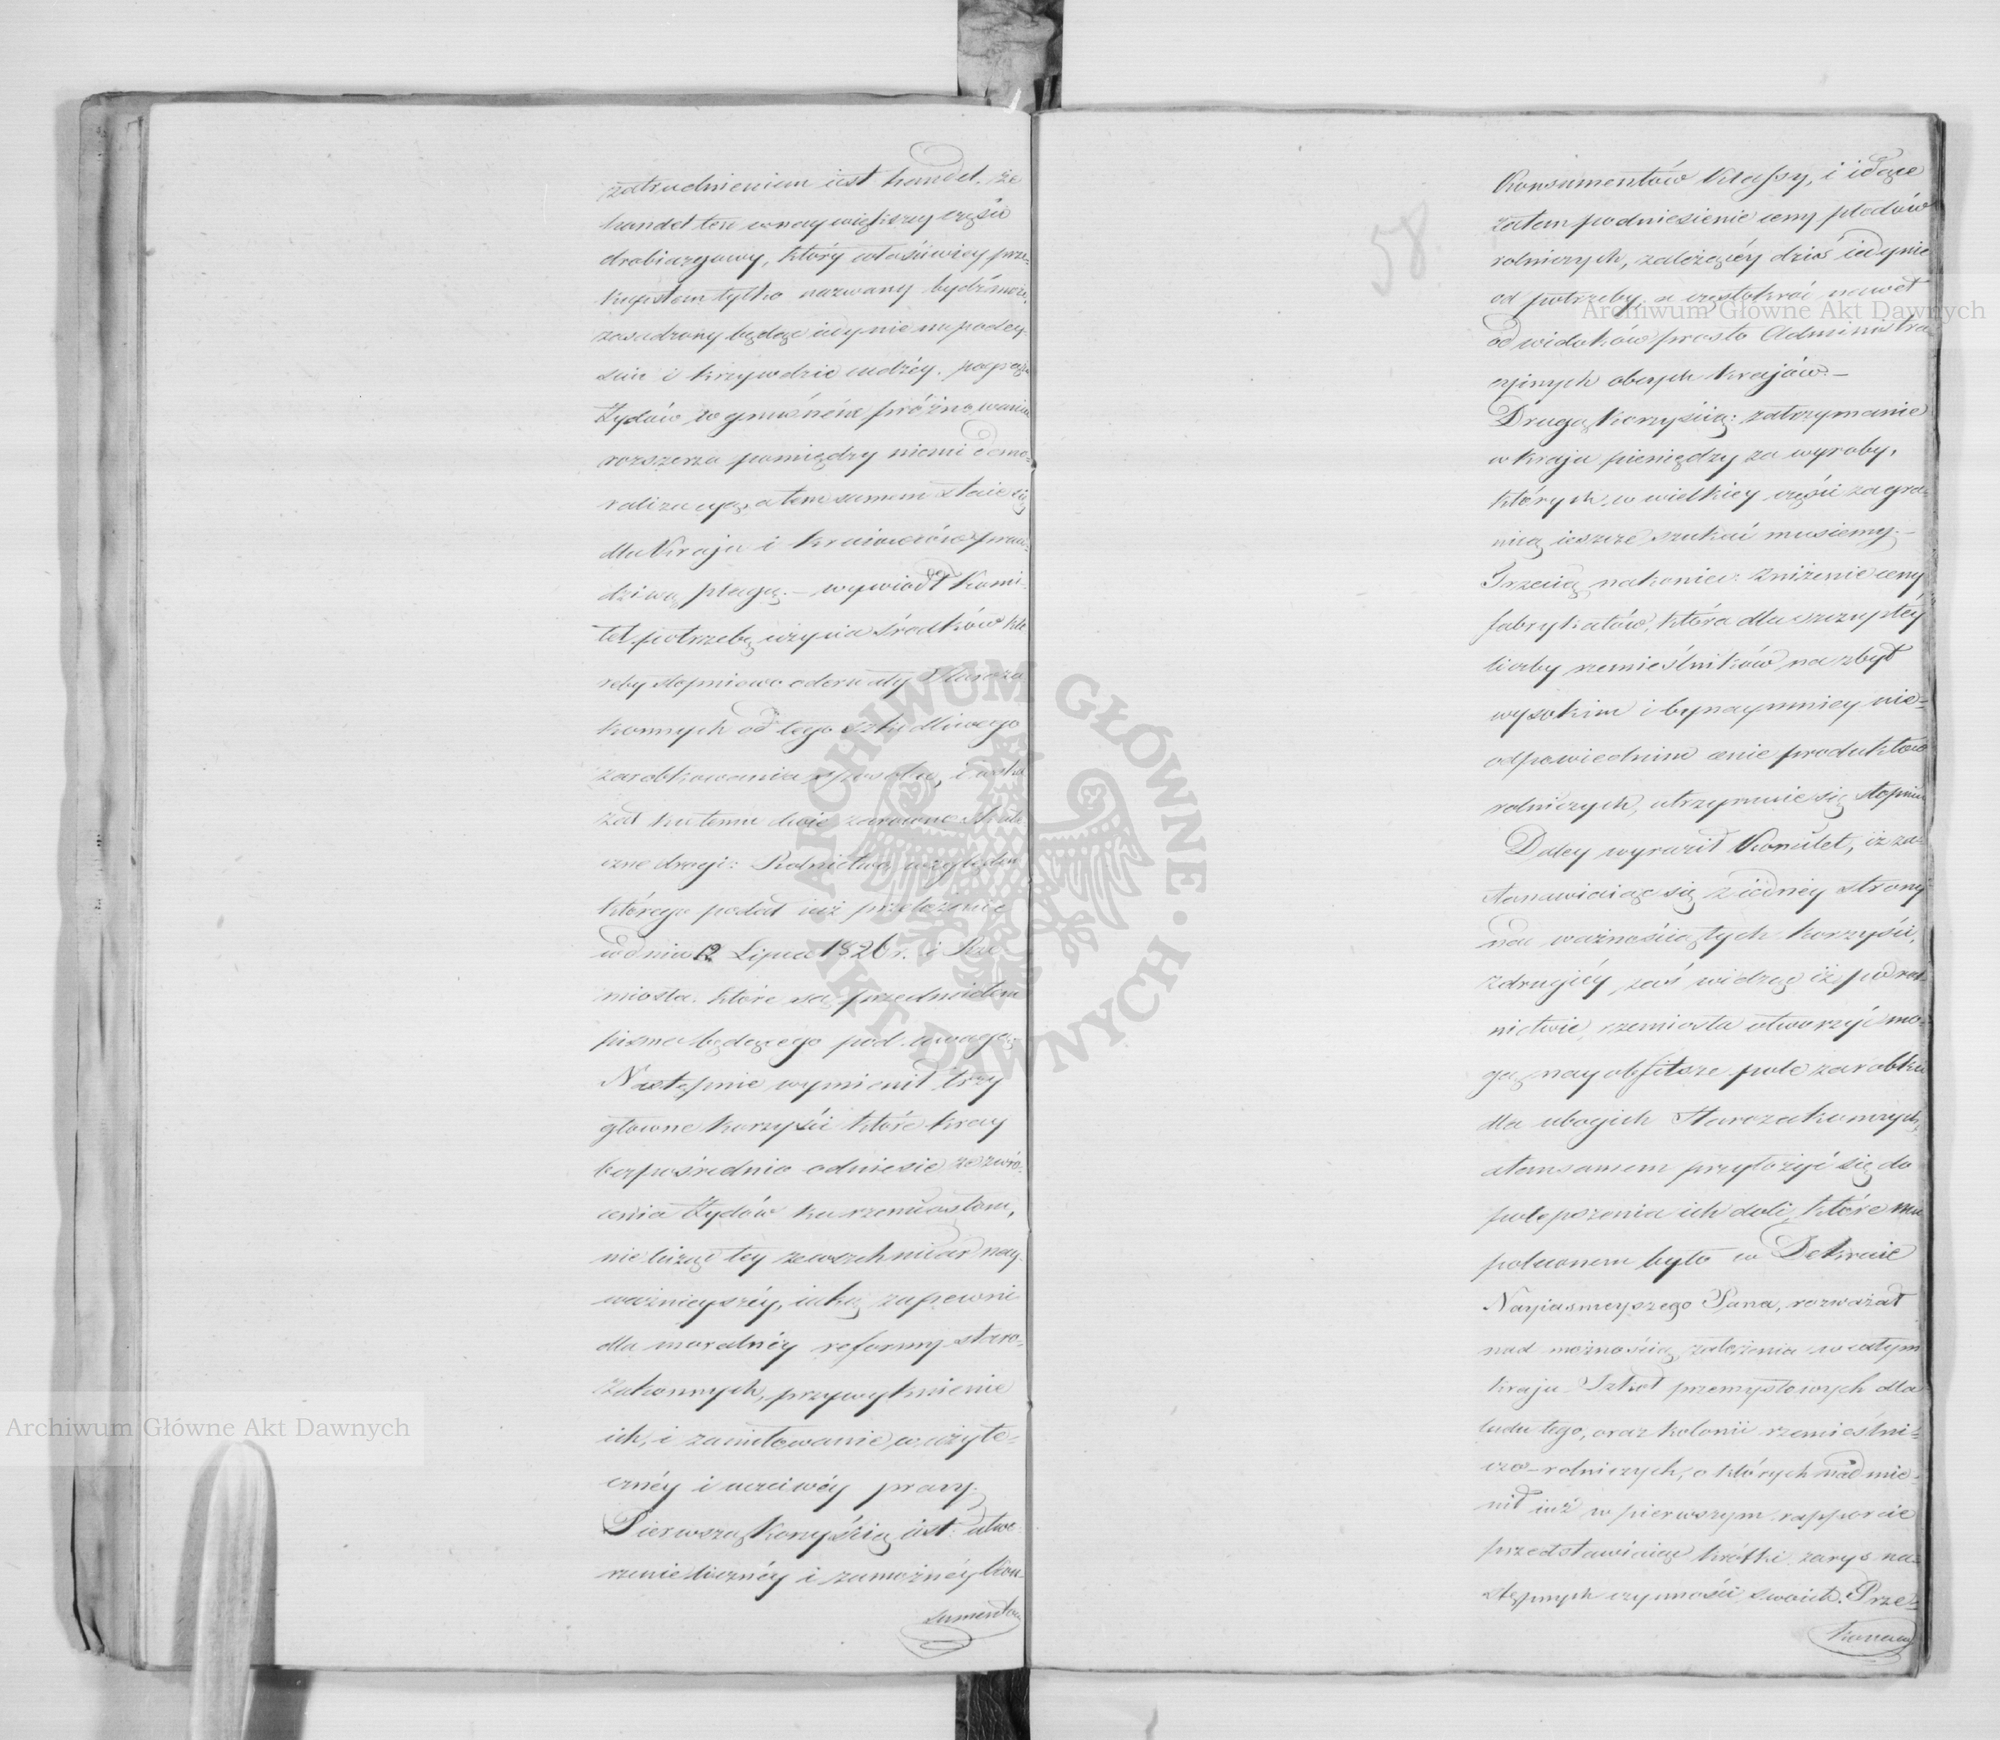 zatrudnieniem iest handel, że
handel ten w naywiększey części
drobiazgowy, który właściwiey prze-
kupstem tylko nazwany bydź może,
zasadzony będąc iedynie na podey-
ściu i krzywdzie cudzéy, pogrąża
Żydów w gnuśném próżnowaniu
rozszerza pomiędzy niemi demo-
ralizacyą, a tem samem staie się
dla Kraju i kraiowców praw-
dziwą plagą. — wywiódł Komi-
tet potrzebę użycia środków któ
reby stopniowo oderwały Staroza
konnych od tego szkodliwego
zarobkowania sposobu, i wska
zał ku temu dwie zarówno skute
czne drogi: Rolnictwo, względem
którego podał iuż przełożenie
w dniu 12 Lipca 1826 r. i Rze
miosła, które są przedmiotem
pisma będącego pod uwagą.
Następnie wymienił trzy
głowne korzyści które kray
bezpośrednio odniesie ze zwró-
cenia Żydów ku rzemiosłom,
nie licząc tey ze wszech miar nay-
ważnieyszéy, iaką zapewni
dla moralnéy reformy staro-
zakonnych, przywyknienie
ich, i zamiłowanie w użyte-
cznéy i uczciwéy pracy.
Pierwszą Korzyścią iest: utwo
rzenie licznéy i zamożnéy Kon-
sumentów
58
Konsumentów Klassy, i idące
zatem podniesienie ceny płodów
rolniczych, zależącéy dziś iedynie
od potrzeby, a częstokroć nawet
od widoków prosto Administra-
cyinych obcych krajów. —
Drugą Korzyścią: zatrzymanie
w kraju pieniędzy za wyroby,
których w wielkiey części za gra-
nicą ieszcze szukać musiemy. —
Trzecią nakoniec: zniżenie ceny
fabrykatów, która dla szczupłéy
liczby rzemieślników na zbyt
wysokim i bynaymniey nie-
odpowiednim cenie produktów
rolniczych, utrzymuie się stopniu
Daley wyraził Komitet, iż za-
stanawiaiąc się z iednéy strony
nad ważnością tych korzyści,
z drugiéy zaś widząc iż po rol-
nictwie, rzemiosła utworzyć mo-
gą nayobfitsze pole zarobku
dla ubogich Starozakonnych,
a tem samem przyłożyć się do
polepszenia ich doli, które mu
poleconem było w Dekrecie
Nayiasnieyszego Pana, rozważał
nad możnością założenia w całym
kraju Szkół przemysłowych dla
ludu tego, oraz kolonii rzemieślni-
czo-rolniczych, o których nadmie-
nił iuż w pierwszym rapporcie
przedstawiaiąc krótki zarys na-
stępnych czynności swoich. Prze-
konany
Archiwum Główne Akt Dawnych
Archiwum Główne Akt Dawnych
ARCHIWUM GŁÓWNE AKT DAWNYCH